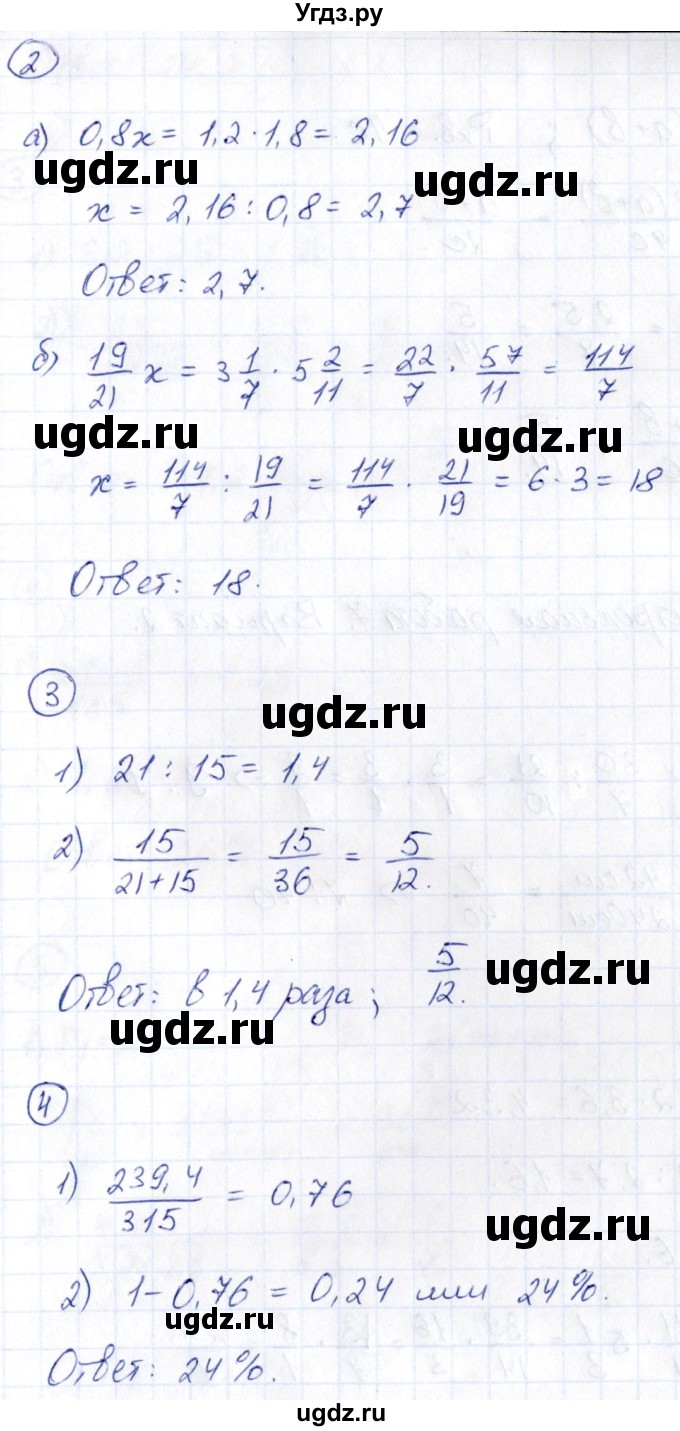 Угдз.ру
2
а) 0,8x = 1,2 · 1,8 = 2,16
ugdz.ru ugdz.ru
x = 2,16 : 0,8 = 2,7
Ответ: 2,7.
б) 19/21 x = 3 1/7 · 5 2/11 = 22/7 · 57/11 = 114/7
ugdz.ru ugdz.ru
x = 114/7 : 19/21 = 114/7 · 21/19 = 6 · 3 = 18
Ответ: 18.
3
ugdz.ru
1) 21 : 15 = 1,4
2) 15/21+15 = 15/36 = 5/12.
Ответ: в 1,4 раза; 5/12.
ugdz.ru
ugdz.ru
4
1) 239,4/315 = 0,76
ugdz.ru
2) 1 - 0,76 = 0,24 или 24%.
ugdz.ru
Ответ: 24%.
ugdz.ru